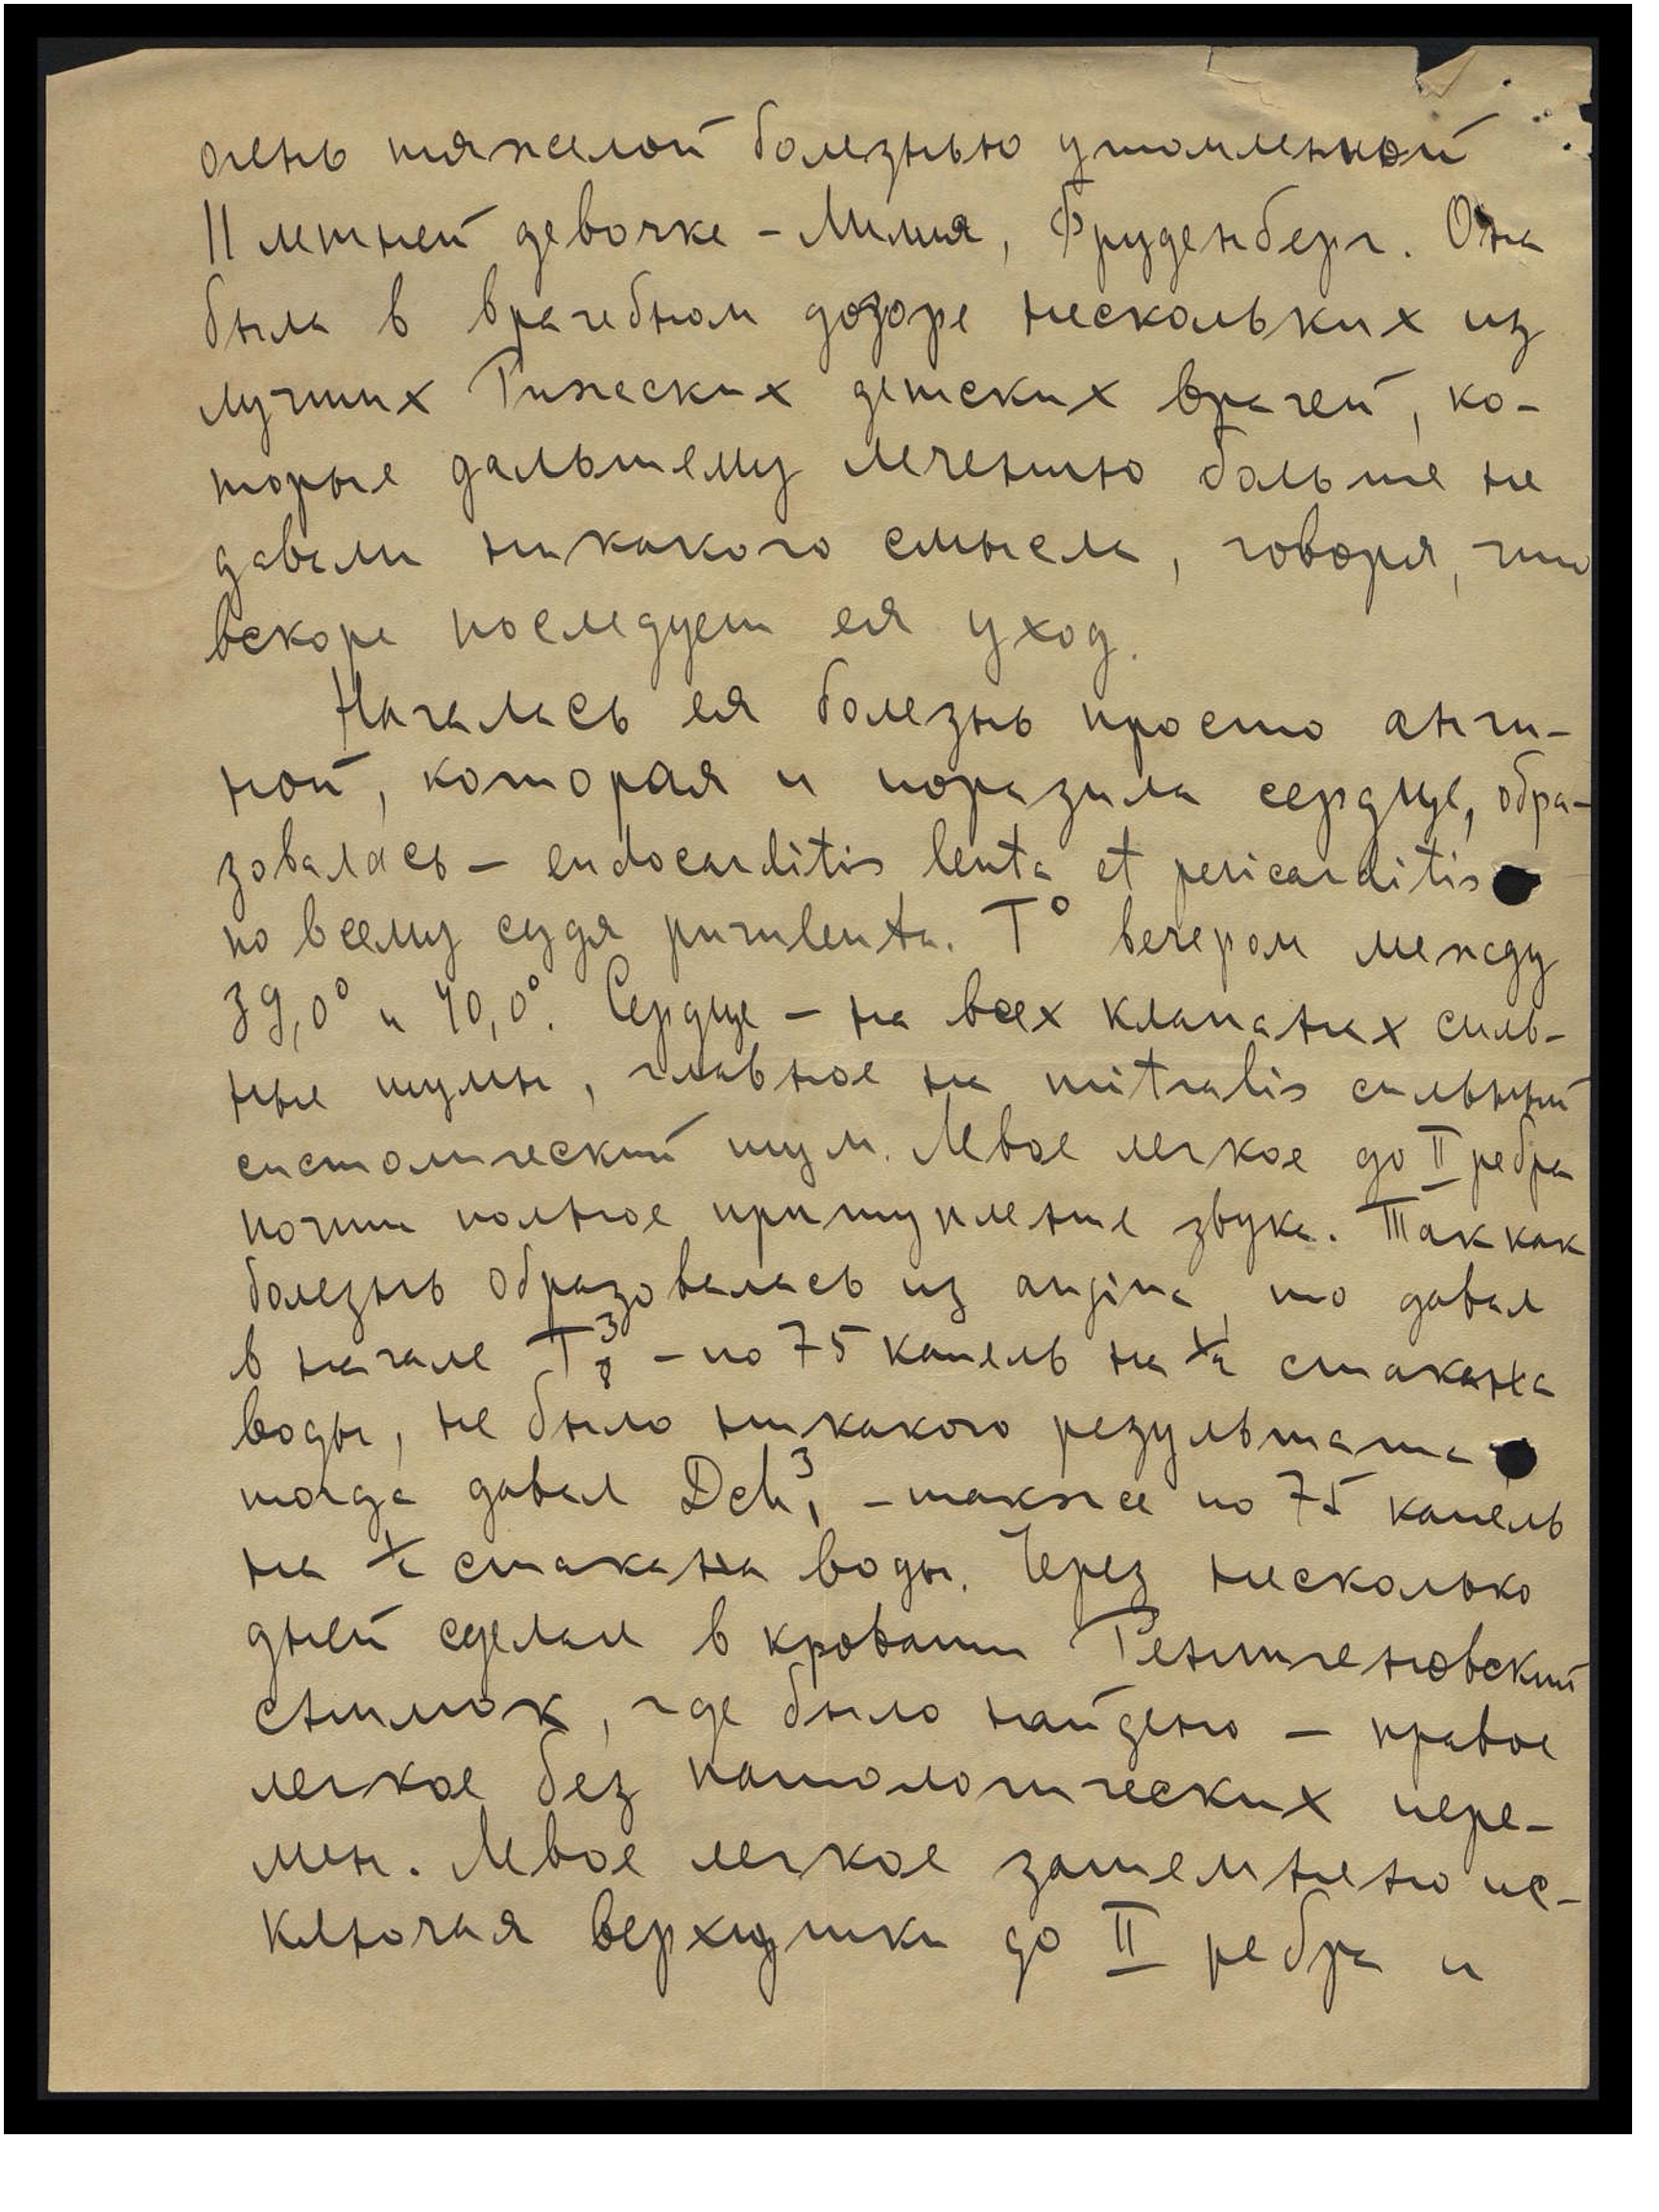 очень тяжелой болезнью утомленной
11 летней девочке – Лилия, Фруденберг. Она
была в врачебном дозоре нескольких из
лучших Рижских детских врачей, ко-
торые дальшему лечению больше не
давали никакого смысла, говоря, что
вскоре последует ея уход.
Началась ея болезнь просто анги-
ной, которая и поразила сердце, обра-
зовалась – endocarditis lenta et pericarditis
по всему судя purulenta. T° вечером между
39,0° и 40,0°. Сердце – на всех клапанах силь-
ные шумы, главное на mitralis сильный
систолический шум. Левое легкое до II ребра
почти полное притупление звука. Так как
болезнь образовалась из angina, то давал
в начале T³₈ – по 75 капель на ½ стакана
воды, не было никакого результата
тогда давал Dch³₁ – также по 75 капель
на ½ стакана воды. Через несколько
дней сделали в кровати Рентгеновский
снимок, где было найдено – правое
легкое без патологических пере-
мен. Левое легкое затемнено ис-
ключая верхушки до II ребра и